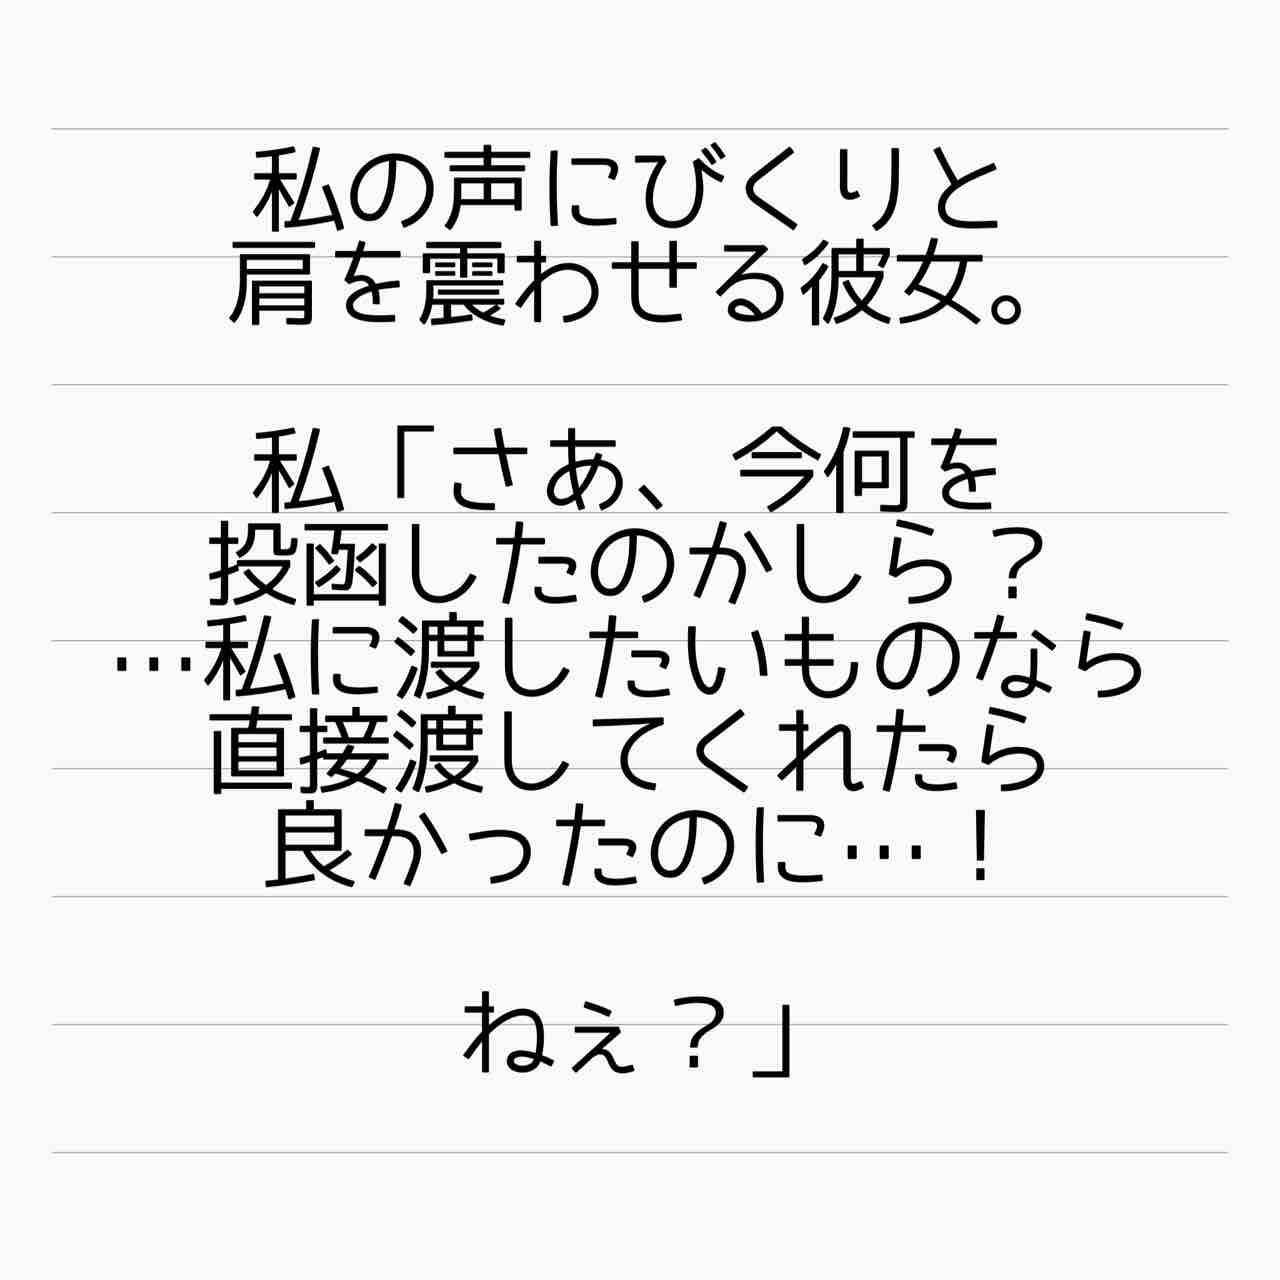 私の声にびくりと
肩を震わせる彼女。
私「さあ、今何を
投函したのかしら？
…私に渡したいものなら
直接渡してくれたら
良かったのに…！
ねぇ？」